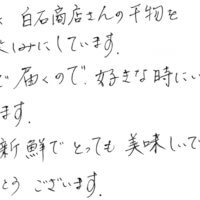 白石商店さんの干物を
しみにしています.
届くので、好きな時に
ます.
新鮮でとっても美味しいで
とうございます.